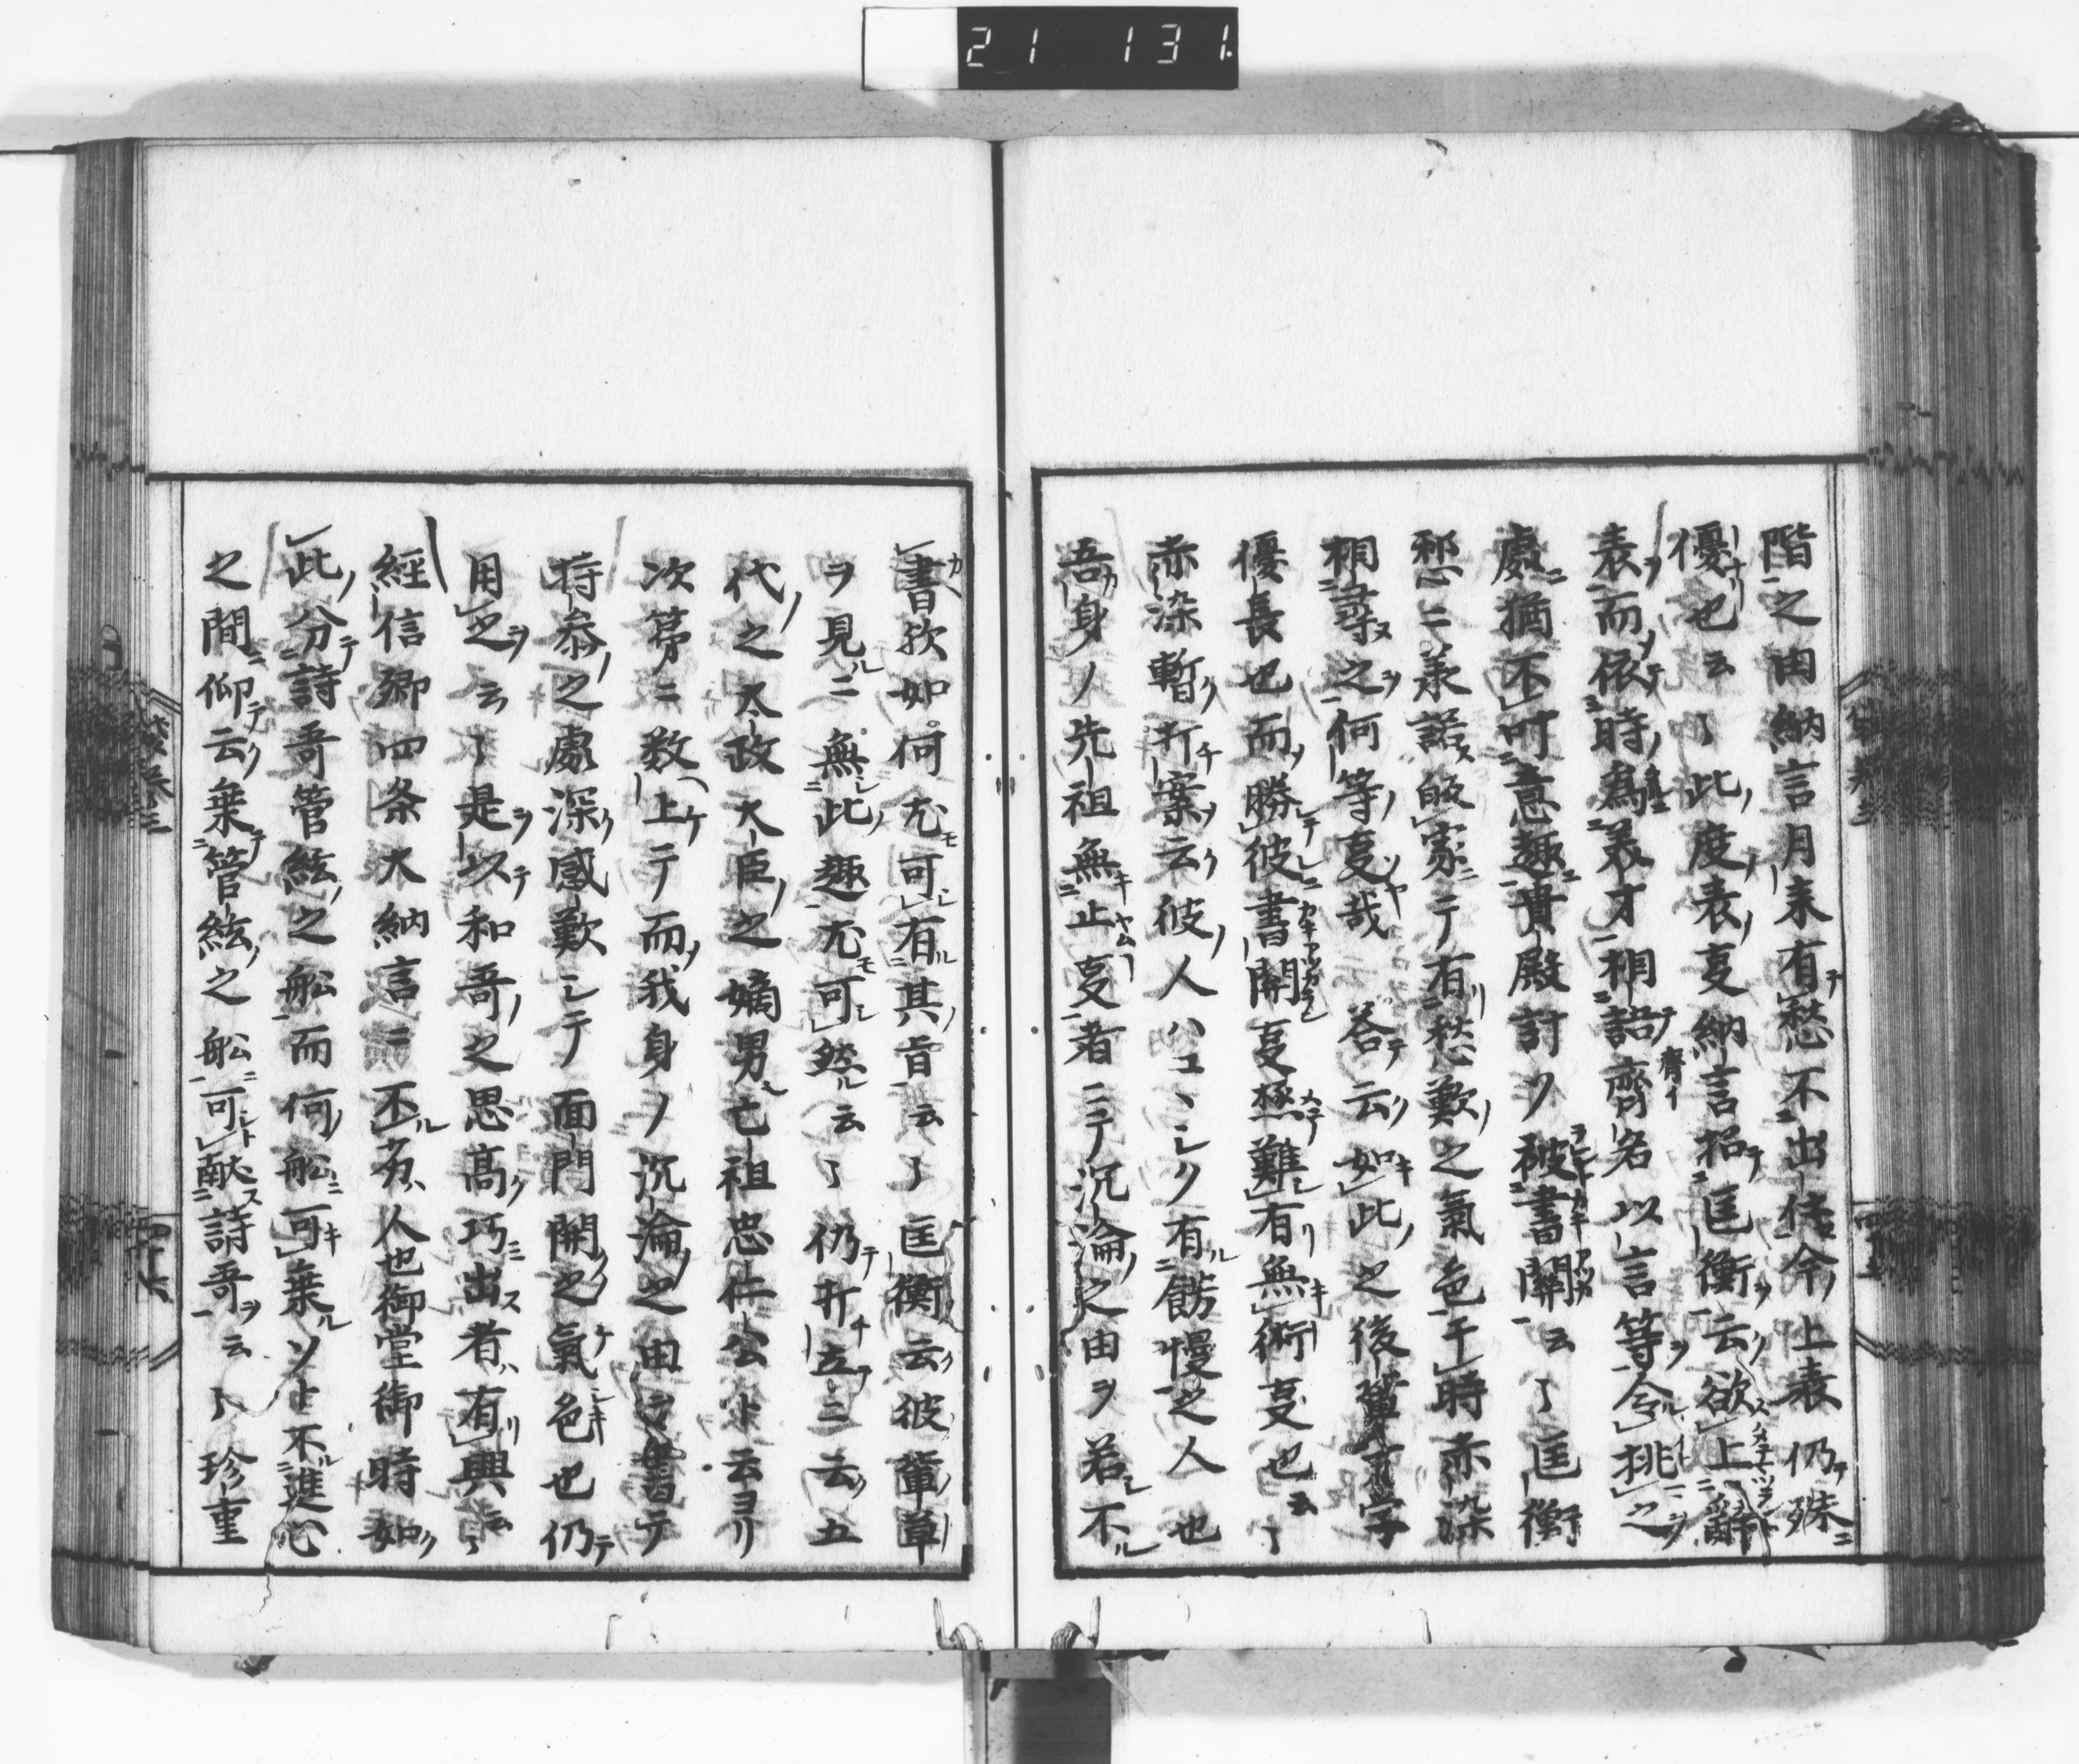 21 131.
階之由納言月来有愁不出仕今上表仍殊
優也云々此度表叓納言招匡衡云欲上辭
表而依時為美才相語齊名以言等令挑之
處猶不叶意趣貴殿許ソ被書開云々匡衡
憖ニ羕諾皈家テ有愁歎之氣色于時赤染
相尋之何等叓哉 荅云如此之後輩才字
優長也而勝彼書開叓極難有無術叓也云々
赤染暫打案云彼人ハユヽシク有餝慢之人也
吾身ノ先祖無止叓者ニテ沉淪之由ヲ若不
書欤如何尤可有其旨云々匡衡云彼輩草
ヲ見ニ無此趣尤可然云々仍打立ニ云五
代之太政大臣之嫡男亡祖忠仁公ト云ヨリ
次第ニ数上テ而我身ノ沉淪之由書テ
持叅之處深感歎シテ面門開之氣色也仍
用之云々是以和哥之思高巧出者有興云々
經信卿四条大納言ニ不劣人也御堂御時如
此分詩哥管絃之舩而何舩可乗ソト不進心
之間仰云乗管絃之舩可献詩哥云々珍重